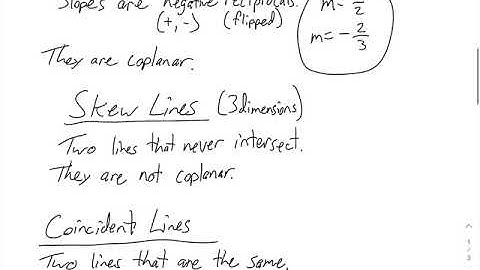 Slopes are negative reciprocals.
(+,-) (flipped)
m=
2
m = -2/3
They are coplanar.
Skew Lines (3 dimensions)
Two lines that never intersect.
They are not coplanar.
Coincident Lines
Two lines that are the same.
1/3